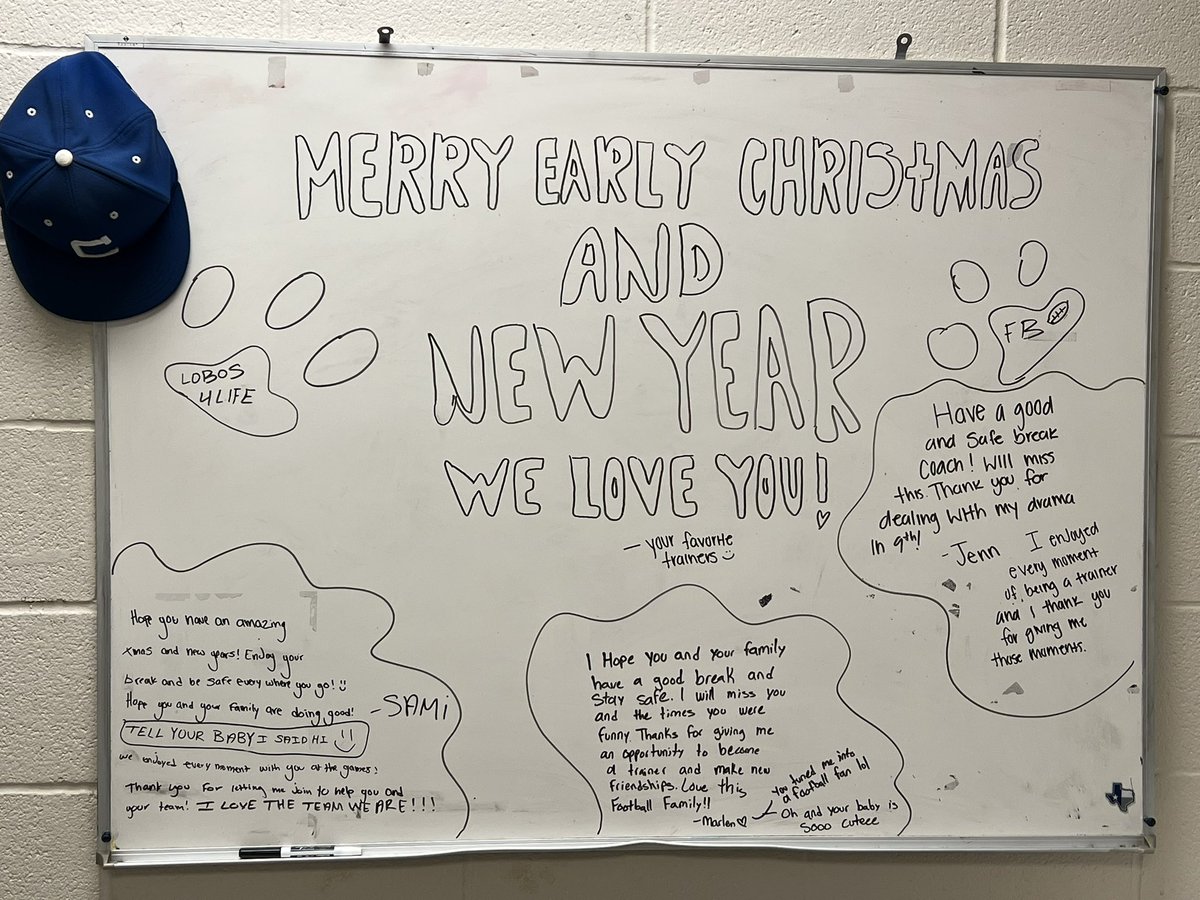 MERRY EARLY CHRIStMAS
AND
NEW YEAR
WE LOVE YOU!
- your favorite
trainers
LOBOS
4 LIFE
FB
Have a good
and safe break
Coach! Will miss
this. Thank you for
dealing with my drama
In 9th!
-Jenn
I enjoyed
every moment
of being a trainer
and I thank you
for giving me
those moments.
Hope you have an amazing
xmas and new years! Enjoy your
break and be safe every where you go!
Hope you and your family are doing good!
-SAMi
TELL YOUR BABY I SAID HI !!
we enjoyed every moment with you at the games!
Thank you for letting me join to help you and
your team! I LOVE THE TEAM WE ARE!!!
I Hope you and your family
have a good break and
Stay safe. I will miss you
and the times you were
funny. Thanks for giving me
an opportunity to become
a trainer and make new
friendships. Love this
Football Family!!
-Marlen
you tuned me into
a football fan lol
Oh and your baby is
Sooo cuteee